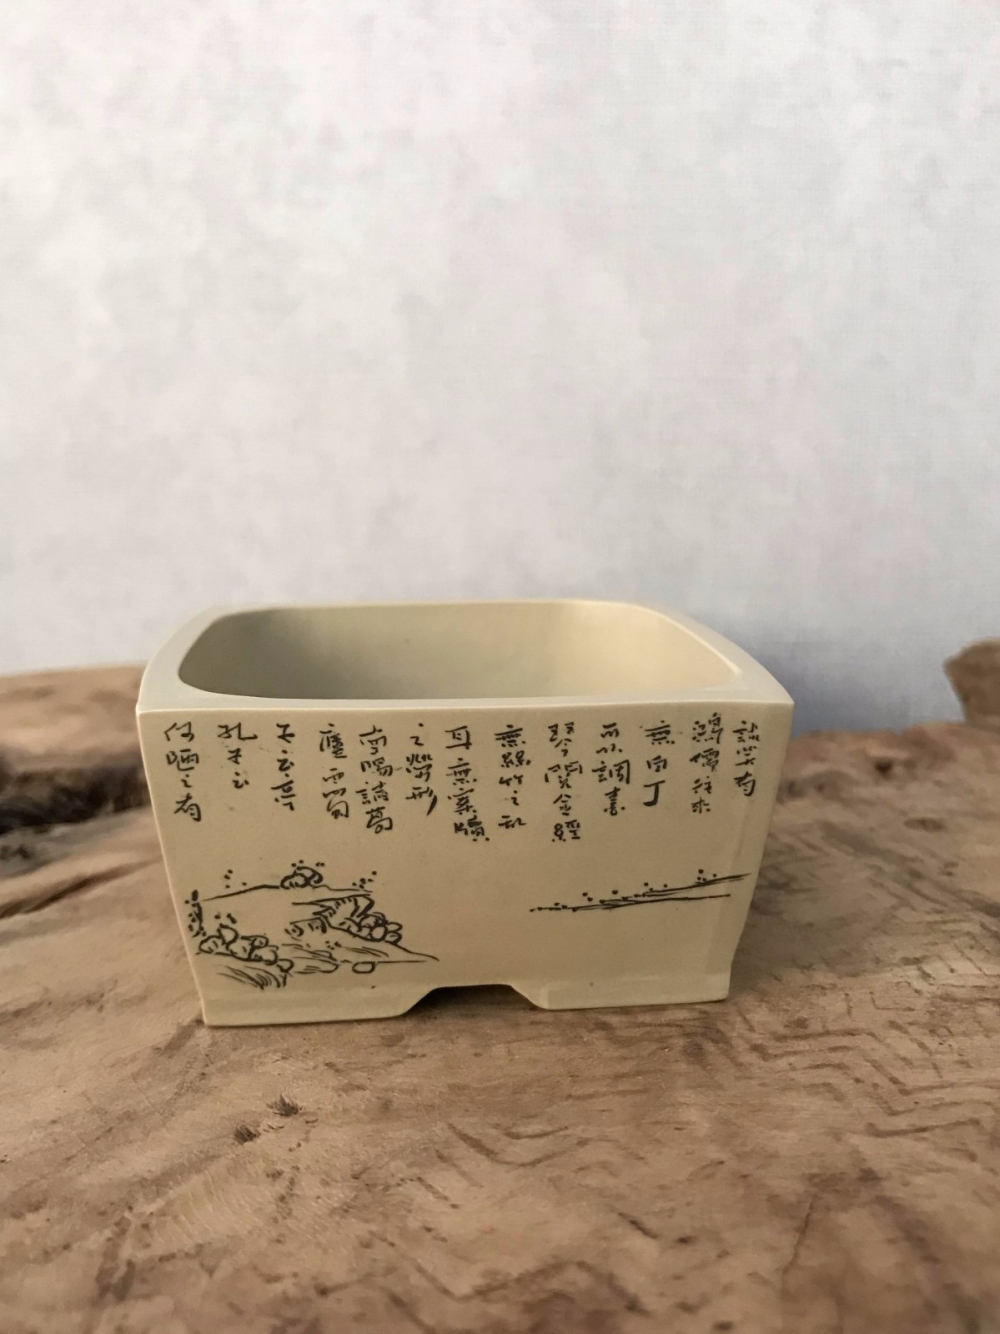 談笑有
鴻儒往来
無白丁
可以調素
琴閲金經
無絲竹之乱
耳無案牘
之勞形
南陽諸葛
廬西蜀
子云亭
孔子云
何陋之有